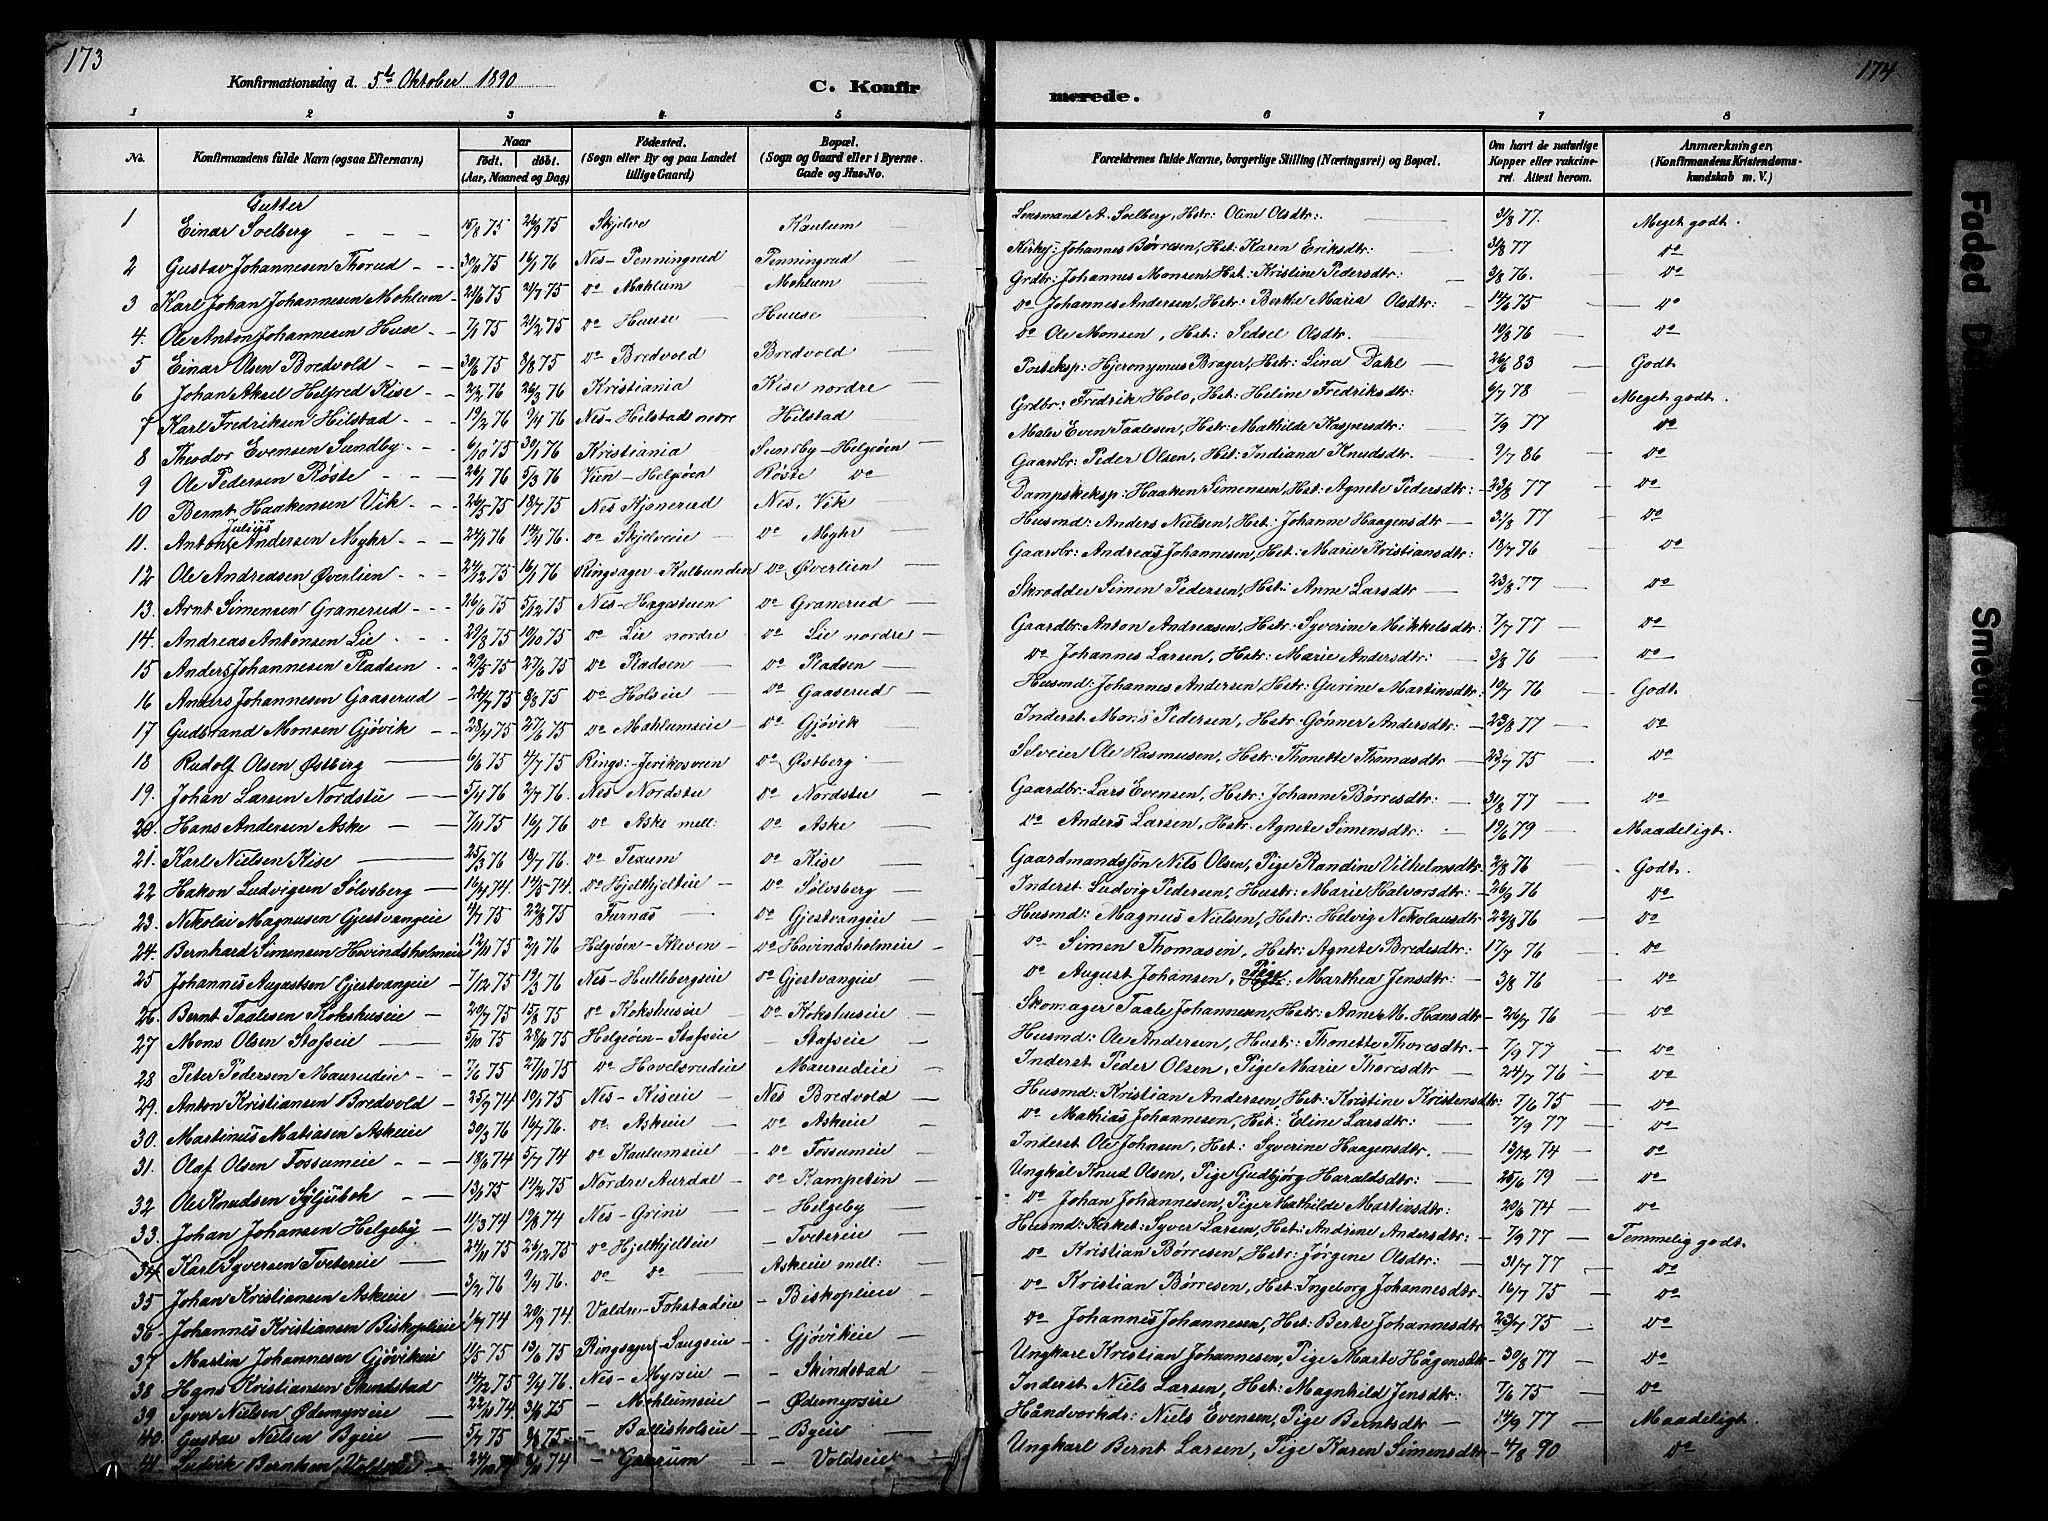 173
174
Konfirmationsdag d. 5te Oktober 1890
C. Konfirmerede.
1 2 3 4 5 6 7 8
No. Konfirmandens fulde Navn (ogsaa Efternavn) Naar født. døbt. (Aar, Maaned og Dag) Fødested. (Sogn eller By og paa Landet tillige Gaard) Bopæl. (Sogn og Gaard eller i Byerne. Gade og Hus-No. Forældrenes fulde Navne, borgerlige Stilling (Næringsvei) og Bopæl. Om havt de naturlige Kopper eller vakcineret. Attest herom. Anmærkninger. (Konfirmandens Kristendomskundskab m. V.)
Gutter
1 Einar Soelberg 15/8 75 26/9 75 Skjelve Kaulum Lensmand A. Soelberg, Hstr: Oline Olsdtr: 3/8 77. Meget godt.
2 Gustav Johannesen Thorud 16/1 76 Nes - Penningrud Penningrud Johannes Børresen, Hst: Karen Eriksdtr: 31/8 77 do
3 Karl Johan Johannesen Mohlum 24/6 75 21/7 75 do Mohlum Mohlum Grdbr: Johannes Monsen, Hst: Kristine Pedersdtr: 3/8 76. do
4. Ole Anton Johannesen Huse 7/1 75 21/2 75 do Huuse Huuse do Johannes Andersen, Hstr: Berthe Maria Olsdtr: 14/6 75 do
5 Einar Olsen Bredvold 30/6 75 8/8 75 do Bredvold Bredvold do Ole Monsen, Hst: Sedsel Olsdtr. 10/8 76 do
6 Johan Aksel Helfred Kise 2/2 76 26/3 76 Kristiania Kise nordre Posteksp: Hjeronymus Brager, Hstr: Lina Dahl 26/6 83 Godt
7 Karl Fredriksen Hilstad 19/2 76 9/4 76 Nes - Hilstad nedre Hilstad Grdbr: Fredrik Holo, Hst: Heline Fredriksdtr: 6/7 78 Meget godt.
8 Theodor Evensen Sundby 6/10 75 30/1 76 Kristiania Sundby - Helgøen Maler Even Taalesen, Hst: Mathilde Kaspersdtr: 7/9 77 do
9 Ole Pedersen Røste 5/3 76 Vien - Helgøen Røste do Gaardbr: Peder Olsen, Hst: Indiana Knudsdtr: 9/7 86 do
10 Bernt Haakensen Vik 26/5 75 18/7 75 Nes Kjonerud Nes, Vik Dampskeksp: Haaken Simensen, Hst: Agnete Pedersdtr: 23/8 77 do
11. Anton Julius Andersen Myhr 24/1 76 14/4 76. do Skjelveie do Myhr Husmd: Anders Nielsen, Hst: Johanne Haagensdtr 31/8 77 do
12 Ole Andreasen Øverlien 24/12 75 16/1 76 Ringsager - Kulbunden do Øverlien Gaardbr: Andreas Johannesen, Hst: Marie Kristiansdtr: 18/7 76 do
13. Arnt Simensen Granerud 26/6 75 5/12 75 Nes - Hagestuen do Granerud Skrædder Simen Pedersen, Hst: Anne Larsdtr: 23/8 77 do
14. Andreas Antonsen Lie 29/8 75 10/10 75 do Lie nordre do Lie nordre Gaardbr: Anton Andreasen, Hstr: Syverine Mikkelsdtr: 7/7 77 do
15 Anders Johannesen Pladsen 29/5 75 27/6 75 do Pladsen do Pladsen do Johannes Larsen, Hstr: Marie Andersdtr: 3/8 76 do
16 Anders Johannesen Gaaserud 24/7 75 9/8 75 do Holseie do Gaaserud Husmd: Johannes Andersen, Hstr: Gurine Martinsdtr: 10/7 76 Godt
17 Gudbrand Monsen Gjøvik 28/4 75 27/6 75 do Mahlumseie do Gjøvik Inderst Mons Pedersen, Hstr: Gønner Andersdtr: 23/8 77 do
18 Rudolf Olsen Østberg 6/6 75 4/7 75 Rings: - Jerikosveen do Østberg Selveier Ole Rasmussen, Hstr: Thonette Thomasdtr 23/7 75 do
19. Johan Larsen Nordstu 5/4 76 2/7 76. Nes - Nordstu do Nordstu Gaardbr: Lars Evensen, Hstr: Johanne Børresdtr: 31/8 77 do
20. Hans Andersen Aske 7/11 75 16/1 76 do Aske mell: do Aske do Anders Larsen, Hstr: Agnete Simensdtr: 19/6 79 Maadeligt.
21. Karl Nielsen Kise 25/3 76 18/7 76 do Texum do Kise Gaardmandssøn Nils Olsen, Pige Randine Vilhelmsdtr: 2/8 76 Godt.
22 Hakon Ludvigsen Sølvsberg 16/4 74. 14/5 74. do Hjelhjelteie do Sølvsberg Inderst Ludvig Pedersen, Hustr: Marie Halvorsdtr: 26/9 76 do
23. Nikolai Magnusen Gjestvangeie 4/7 75 22/8 75 Furnæs do Gjestvangeie Husmd: Magnus Nielsen, Hstr: Helvig Nikolausdtr 22/8 76 do
24. Bernhard Simensen Hovindsholmeie 12/10 75 2/1 76 Helgøen - Kleven do Hovindsholmeie do Simen Thomasen, Hstr: Agnete Bredesdtr: 17/7 76 do
25 Johannes Augustsen Gjestvangeie 7/12 75 19/3 76 Nes - Hullebergseie do Gjestvangeie do August Johansen, Pige: Marthea Jensdtr: 3/8 76 do
26. Bernt Taalesen Kokshuseie 20/7 75 15/8 75 do Kokshuseie do Kokshuseie Skomager Taale Johannesen, Hstr: Anne M. Hansdtr 26/7 76 do
27 Mons Olsen Stafseie 5/10 75 Helgøen - Stafseie Stafseie Husmd: Ole Andersen, Hustr: Thonette Thoresdtr. 7/9 77 do
28 Peter Pedersen Maurudeie 7/6 75 27/10 75 do Hovelsrudeie Maurudeie Inderst Peder Olsen, Pige Marie Thoresdtr 24/7 76 do
29. Anton Kristiansen Bredvold 25/9 74 10/1 75 Nes - Kiseeie Nes Bredvold Husmd: Kristian Andersen, Hst: Kristine Kristensdtr: 7/6 75 do
30. Martinus Matiasen Askeeie 30/3 76 16/7 76. do Askeie do Askeie do Mathias Johannesen, Hst: Eline Larsdtr: 7/9 77 do
31. Olaf Olsen Fossumeie 18/6 74 5/7 74 do Kaulumseie do Fossumeie Inderst Ole Johnsen, Hst: Syverine Haagensdtr. 13/12 74 do
32 Ole Knudsen Syljubok 13/1 75 14/2 75 Nordre Aurdal do Kampetin Ungkal Knud Olsen, Pige Gudbjørg Haraldsdtr: 25/6 79 do
33. Johan Johansen Helgeby 11/3 74 19/8 74 Nes - Grini - Helgeby do Johan Johannesen, Pige Mathilde Martinsdtr: 20/6 74 do
34 Karl Syversen Tvetereie 24/10 75 26/12 75 do Hjelhjelteie - Tvetereie Husmd: Kirket: Syver Larsen, Hst: Andrine Andersdtr: 7/9 77 Temmelig godt.
35 Johan Kristiansen Askeie 3/2 76 9/4 76. do do Askeie mell: do Kristian Børresen, Hstr: Jørgene Olsdtr: 31/7 77 do
36. Johannes Kristiansen Biskopleie 1/7 74 20/9 74. Valdr - Fokstadeie - Biskopleie do Kristian Børresen, Hst: Ingeborg Johannesdtr 16/7 75 do
37 Martin Johannesen Gjøvikeie 11/5 75 13/6 75 Ringsager - Saugseie - Gjøvikeie do Johannes Johannesen, Hst: Berte Johannesdtr 23/7 75 do
38 Hans Kristiansen Skindstad 14/12 75 9/4 76. Nes - Myrseie - Skindstad Ungkarl Kristian Johannesen, Pige Marte Hågensdtr 30/8 77 do
39 Syver Nielsen Ødemyrseie 22/10 74. - Mohlumseie - Ødemyrseie Inderst Niels Larsen, Hst: Magnhild Jensdtr: 7/6 75 do
40. Gustav Nielsen Byeie 5/7 75 8/8 75 - Ballisholseie - Byeie Håndverkds: Niels Evensen, Pige Berntsdtr 14/9 77 Maadeligt.
41. Ludvik Berntsen Voldseie 24/10 74 74 - Gaarum - Voldseie Ungkarl Bernt Larsen, Pige Karen Simensdtr 4/8 90 do
Faded D
Smear